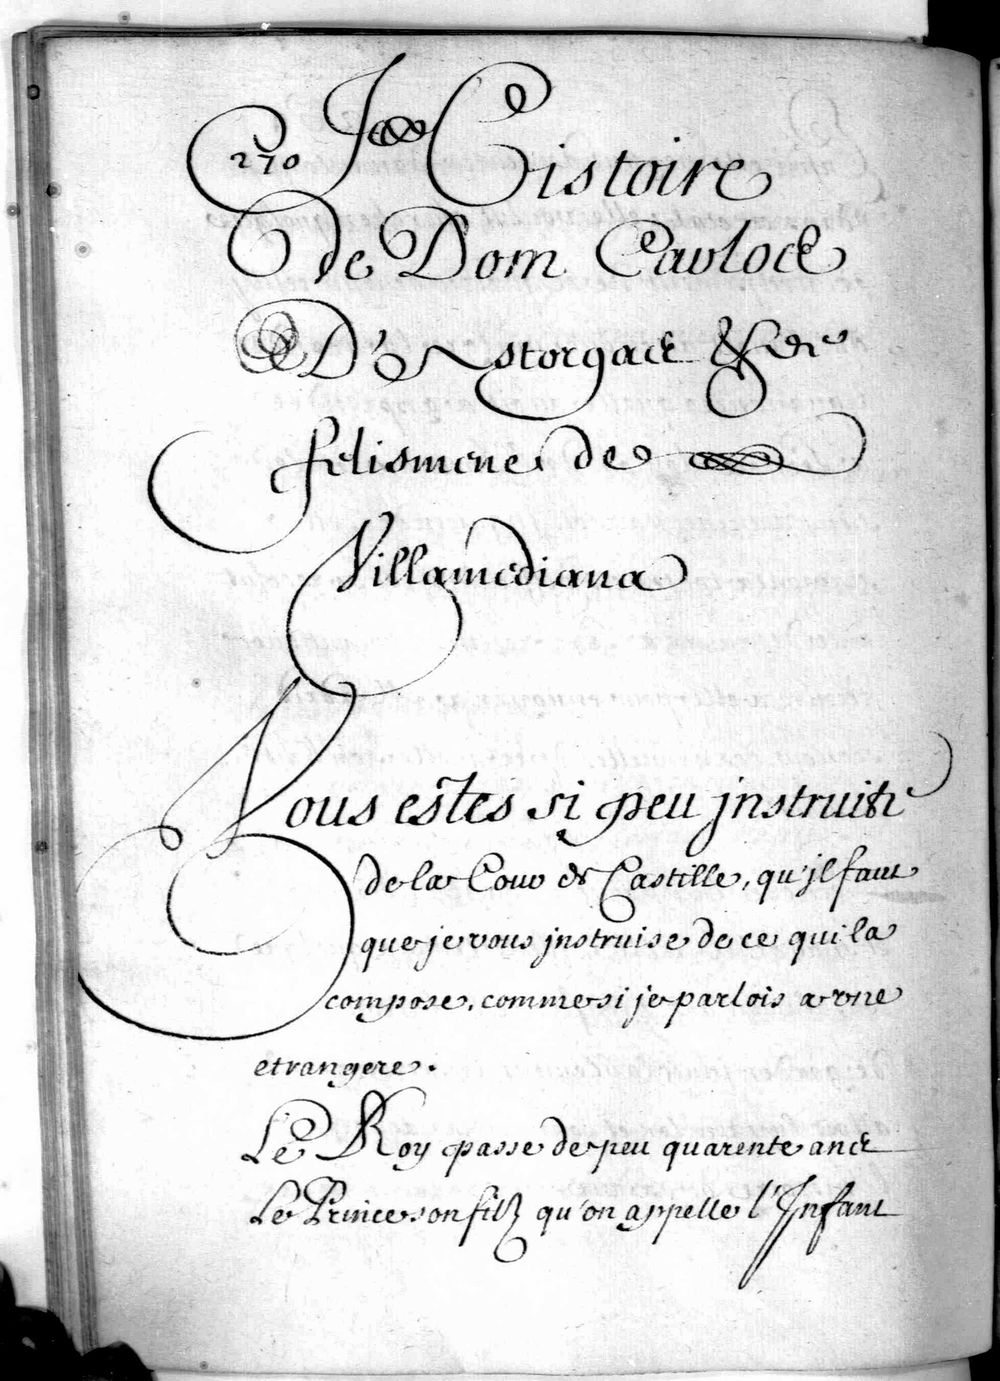 270 Histoire
de Dom Carlos
D'Astorgas & de
felismene de
Villamediana
Vous estes si peu jnstruitte
de la Cour de Castille, qu'jl faut
que je vous jnstruise de ce qui la
compose, comme si je parlois a vne
etrangere.
Le Roy passe de peu quarente ans
Le Prince son filz qu'on appelle l'Infant